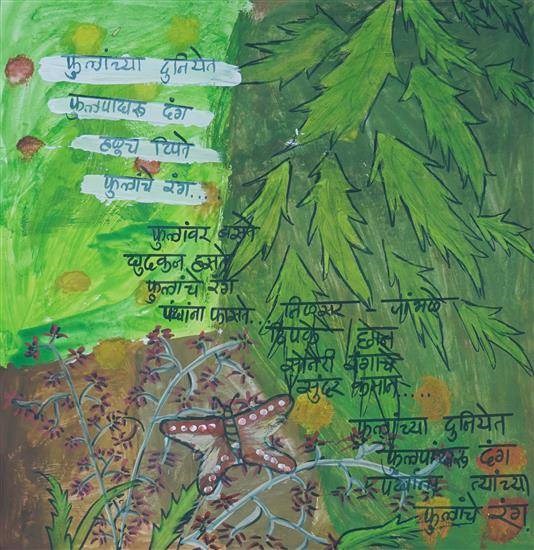 फुलांच्या दुनियेत
फुलपाखरू दंग
हळूच टिपते
फुलांचे रंग...
फुलांवर बसते
खुदकन हसते
फुलांचे रंग
पंखांना फासते
जांभळे
ठिपके छान
सोनेरी रंगाचे
सुंदर कमान.....
फुलांच्या दुनियेत
फुलपाखरू दंग
पंखांना त्यांच्या
फुलांचे रंग.